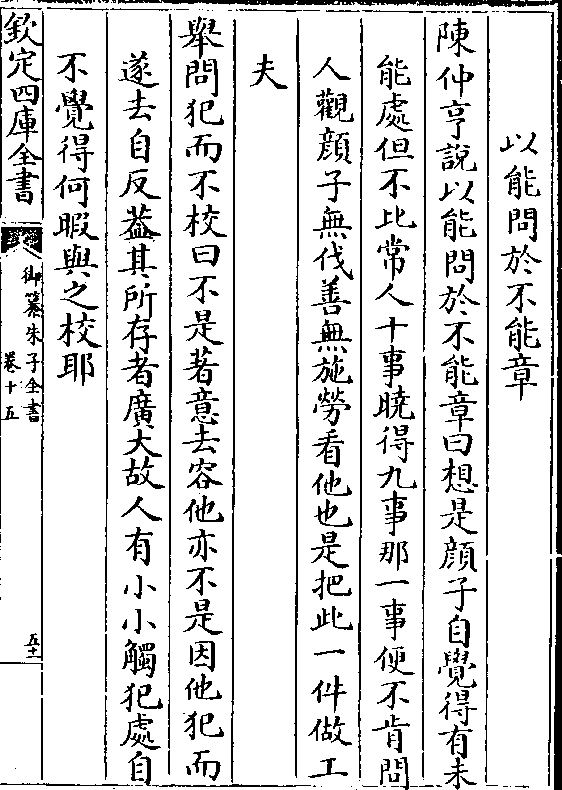 以能問於不能章
陳仲亨説以能問於不能章曰想是顔子自覺得有未
能處但不比常人十事曉得九事那一事便不肯問
人觀顔子無伐善無施勞看他也是把此一件做工
夫
舉問犯而不校曰不是著意去容他亦不是因他犯而
遂去自反葢其所存者廣大故人有小小觸犯處自
不覺得何暇與之校耶
欽定四庫全書
御纂朱子全書
卷十五
五十